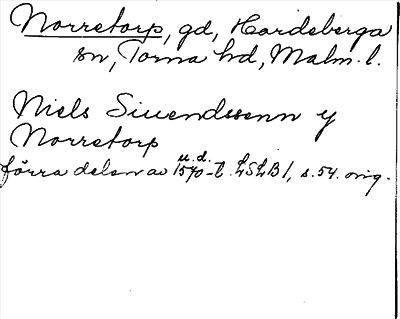 Norretorp, gd, Hardeberga
sn, Torna hd, Malm. l.
Niels Siuendssenn y
Norretorp
u.d.
förra delen av 1570-t. LSLB 1, s. 54. orig.